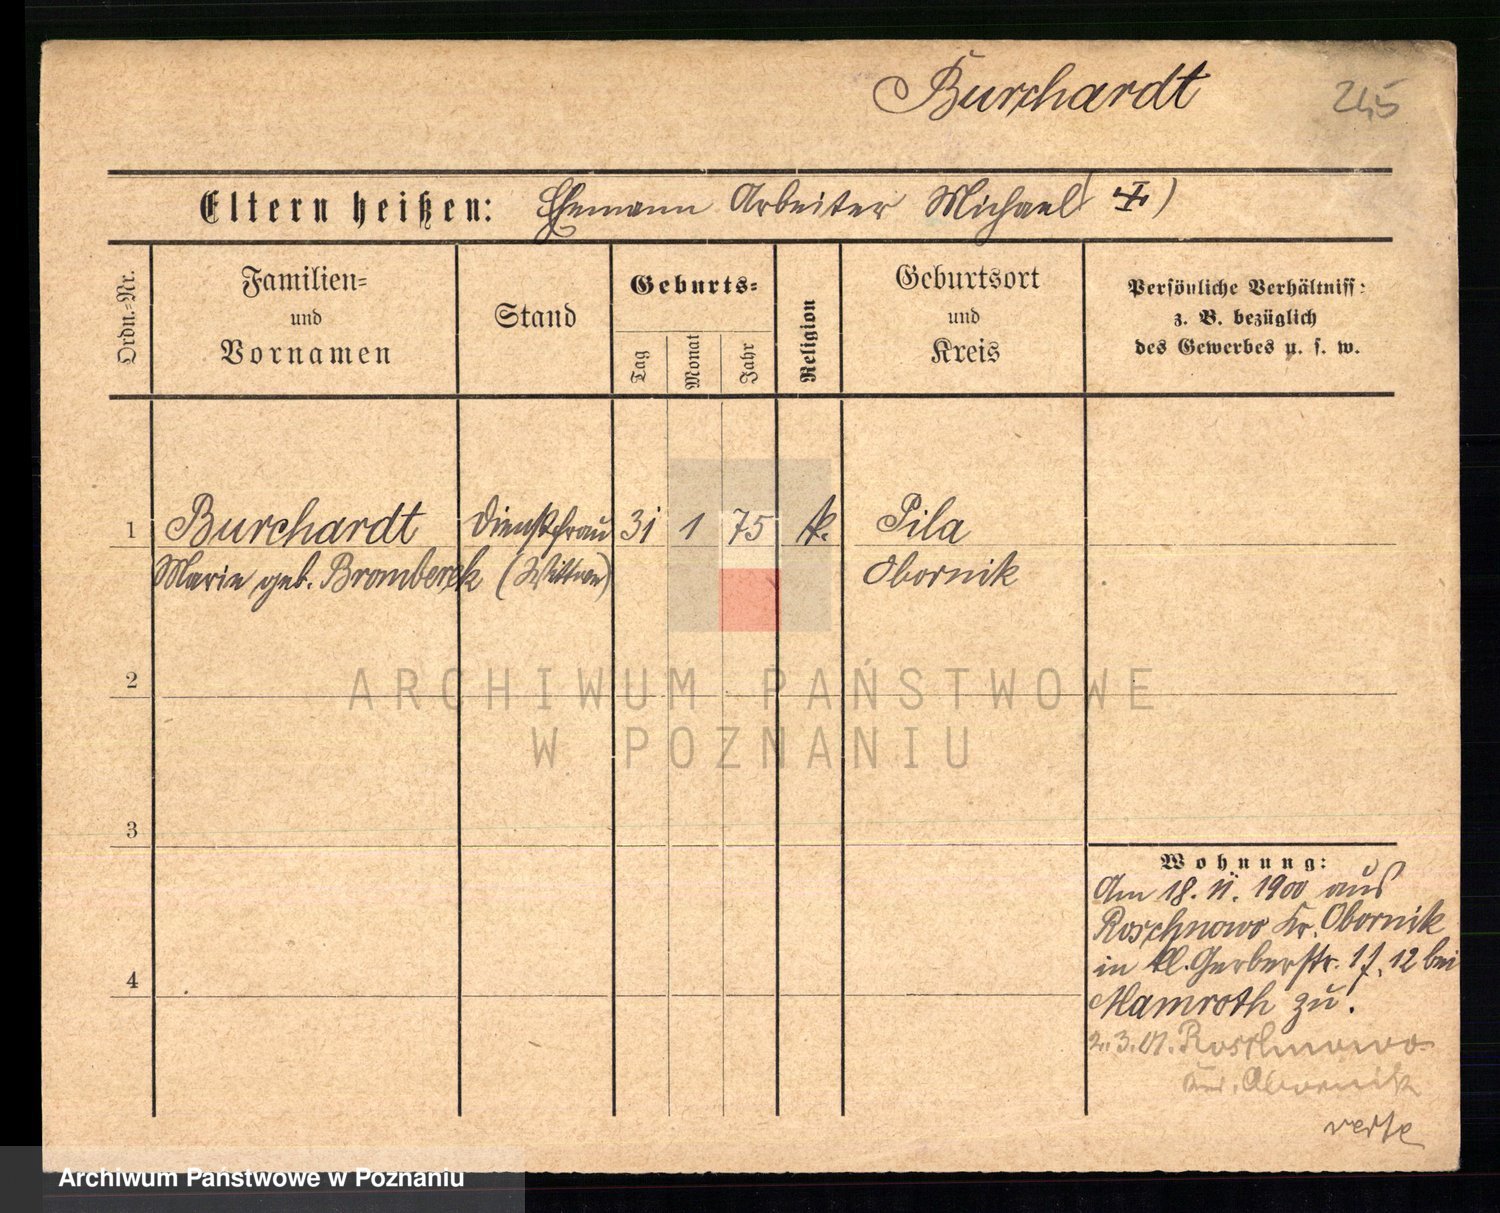 Burchardt
245
Eltern heißen: Ehemann Arbeiter Michael
Ordn.-Nr.
Familien- und Vornamen
Stand
Geburts-
Tag
Monat
Jahr
Religion
Geburtsort und Kreis
Persönliche Verhältniss:
z. B. bezüglich
des Gewerbes u. s. w.
1 Burchardt Dienstfrau 31 1 75 k. Pila
Marie geb. Bromberek (Wittwe) Obornik
2
3
4
Wohnung:
Am 18. 11. 1900 aus
Roschnowo Kr. Obornik
in kl. Gerberstr. 12 bei
Mamroth zu.
2.3.01. Roschnowo
Kr. Obornik
ARCHIWUM PAŃSTWOWE
W POZNANIU
Archiwum Państwowe w Poznaniu